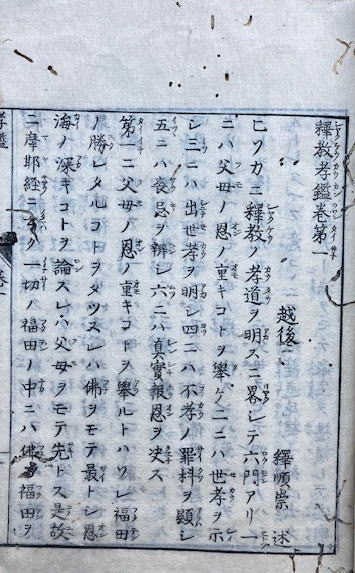 釋教孝鑑卷第一
越後 釋順崇 述
ヒソカニ釋教ノ孝道ヲ明スニ畧シテ六門アリ一
ニハ父母ノ恩ノ重キコトヲ舉ケ二ニハ世孝ヲ示
シ三ニハ出世孝ヲ明シ四ニハ不孝ノ罪科ヲ顯シ
五ニハ喪忌ヲ辨シ六ニハ真實報恩ヲ决ス
第一ニ父母ノ恩ノ重キコトヲ舉ルトハソレ福田
ノ勝レタルコトヲタツヌレハ佛ヲモテ最トシ恩
海ノ深キコトヲ論スレハ父母ヲモテ先トス是故
ニ摩耶経ニ ク一切ノ福田ノ中ニハ佛 福田ヲ